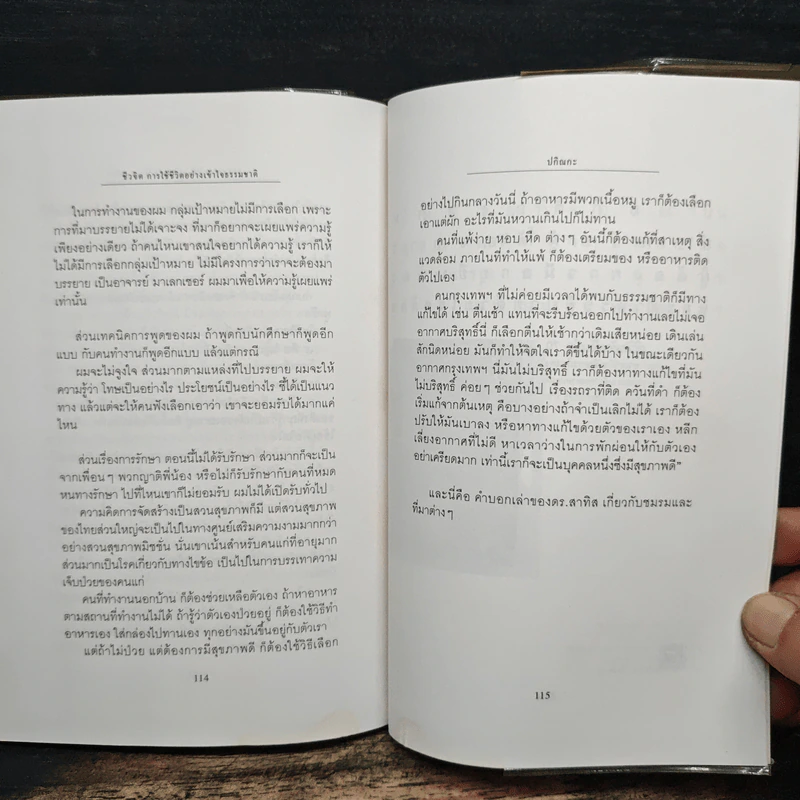 ชีวจิต การใช้ชีวิตอย่างเข้าใจธรรมชาติ
ในการทำงานของผม กลุ่มเป้าหมายไม่มีการเลือก เพราะ
การที่มาบรรยายไม่ได้เจาะจง ที่มาก็อยากจะเผยแพร่ความรู้
เพียงอย่างเดียว ถ้าคนไหนเขาสนใจอยากได้ความรู้ เราก็ให้
ไม่ได้มีการเลือกกลุ่มเป้าหมาย ไม่มีโครงการว่าเราจะต้องมา
บรรยาย เป็นอาจารย์ มาเลกเชอร์ ผมมาเพื่อให้ความรู้เผยแพร่
เท่านั้น
ส่วนเทคนิคการพูดของผม ถ้าพูดกับนักศึกษาก็พูดอีก
แบบ กับคนทำงานก็พูดอีกแบบ แล้วแต่กรณี
ผมจะไม่จูงใจ ส่วนมากตามแหล่งที่ไปบรรยาย ผมจะให้
ความรู้ว่า โทษเป็นอย่างไร ประโยชน์เป็นอย่างไร ชี้ได้เป็นแนว
ทาง แล้วแต่จะให้คนฟังเลือกเอาว่า เขาจะยอมรับได้มากแค่
ไหน
ส่วนเรื่องการรักษา ตอนนี้ไม่ได้รับรักษา ส่วนมากก็จะเป็น
จากเพื่อนๆ พวกญาติพี่น้อง หรือไม่ก็รับรักษากับคนที่หมด
หนทางรักษา ไปที่ไหนเขาก็ไม่ยอมรับ ผมไม่ได้เปิดรับทั่วไป
ความคิดการจัดสร้างเป็นสวนสุขภาพก็มี แต่สวนสุขภาพ
ของไทยส่วนใหญ่จะเป็นไปในทางศูนย์เสริมความงามมากกว่า
อย่างสวนสุขภาพมิชชั่น นั่นเขาเน้นสำหรับคนแก่ที่อายุมาก
ส่วนมากเป็นโรคเกี่ยวกับทางไขข้อ เป็นไปในการบรรเทาความ
เจ็บป่วยของคนแก่
คนที่ทำงานนอกบ้าน ก็ต้องช่วยเหลือตัวเอง ถ้าหาอาหาร
ตามสถานที่ทำงานไม่ได้ ถ้ารู้ว่าตัวเองป่วยอยู่ ก็ต้องใช้วิธีทำ
อาหารเอง ใส่กล่องไปทานเอง ทุกอย่างมันขึ้นอยู่กับตัวเรา
แต่ถ้าไม่ป่วย แต่ต้องการมีสุขภาพดี ก็ต้องใช้วิธีเลือก
114
ปกิณกะ
อย่างไปกินกลางวันนี่ ถ้าอาหารมีพวกเนื้อหมู เราก็ต้องเลือก
เอาแต่ผัก อะไรที่มันหวานเกินไปก็ไม่ทาน
คนที่แพ้ง่าย หอบ หืด ต่างๆ อันนี้ก็ต้องแก้ที่สาเหตุ สิ่ง
แวดล้อม ภายในที่ทำให้แพ้ ก็ต้องเตรียมของ หรืออาหารติด
ตัวไปเอง
คนกรุงเทพฯ ที่ไม่ค่อยมีเวลาได้พบกับธรรมชาติก็มีทาง
แก้ไขได้ เช่น ตื่นเช้า แทนที่จะรีบร้อนออกไปทำงานเลยไม่เจอ
อากาศบริสุทธิ์นี่ ก็เลือกตื่นให้เช้ากว่าเดิมเสียหน่อย เดินเล่น
สักนิดหน่อย มันก็ทำให้จิตใจเราดีขึ้นได้บ้าง ในขณะเดียวกัน
อากาศกรุงเทพฯ นี่มันไม่บริสุทธิ์ เราก็ต้องหาทางแก้ไขที่มัน
ไม่บริสุทธิ์ ค่อยๆ ช่วยกันไป เรื่องรถราที่ติด ควันที่ดำ ก็ต้อง
เริ่มแก้จากต้นเหตุ คือบางอย่างถ้าจำเป็นเลิกไม่ได้ เราก็ต้อง
ปรับให้มันเบาลง หรือหาทางแก้ไขด้วยตัวของเราเอง หลีก
เลี่ยงอากาศที่ไม่ดี หาเวลาว่างในการพักผ่อนให้กับตัวเอง
อย่าเครียดมาก เท่านี้เราก็จะเป็นบุคคลหนึ่งซึ่งมีสุขภาพดี"
และนี่คือ คำบอกเล่าของดร.สาทิส เกี่ยวกับชมรมและ
ที่มาต่างๆ
115